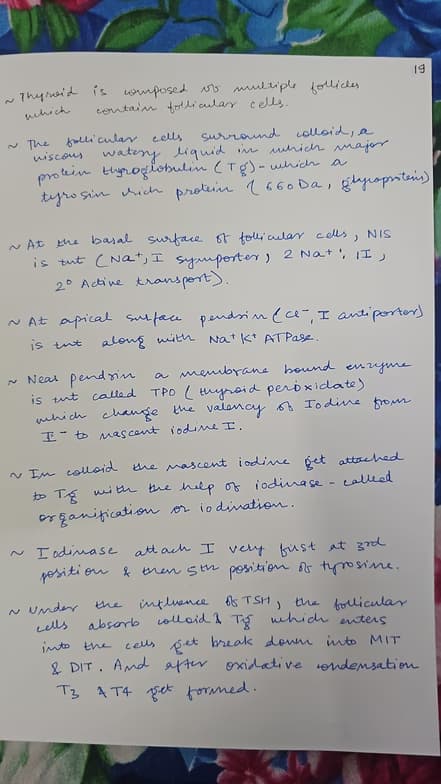 19
~ Thyroid is composed of multiple follicles
which contain follicular cells.
~ The follicular cells surround colloid, a
viscous watery liquid in which major
protein thyroglobulin (Tg) - which a
tyrosin rich protein (660Da, glycoprotein)
~ At the basal surface of follicular cells, NIS
is tnt (Na+, I symporter, 2 Na+ : 1I,
2° Active transport).
~ At apical surface pendrin (Cl-, I antiporter)
is tnt along with Na+ K+ ATPase.
~ Near pendrin a membrane bound enzyme
is tnt called TPO (thyroid peroxidate)
which change the valency of Iodine from
I- to nascent iodine I.
~ In colloid the nascent iodine get attached
to Tg with the help of iodinase - called
organification or iodination.
~ Iodinase attach I very first at 3rd
position & then 5th position of tyrosine.
~ Under the influence of TSH, the follicular
cells absorb colloid & Tg which enters
into the cells get break down into MIT
& DIT. And after oxidative condensation
T3 & T4 get formed.